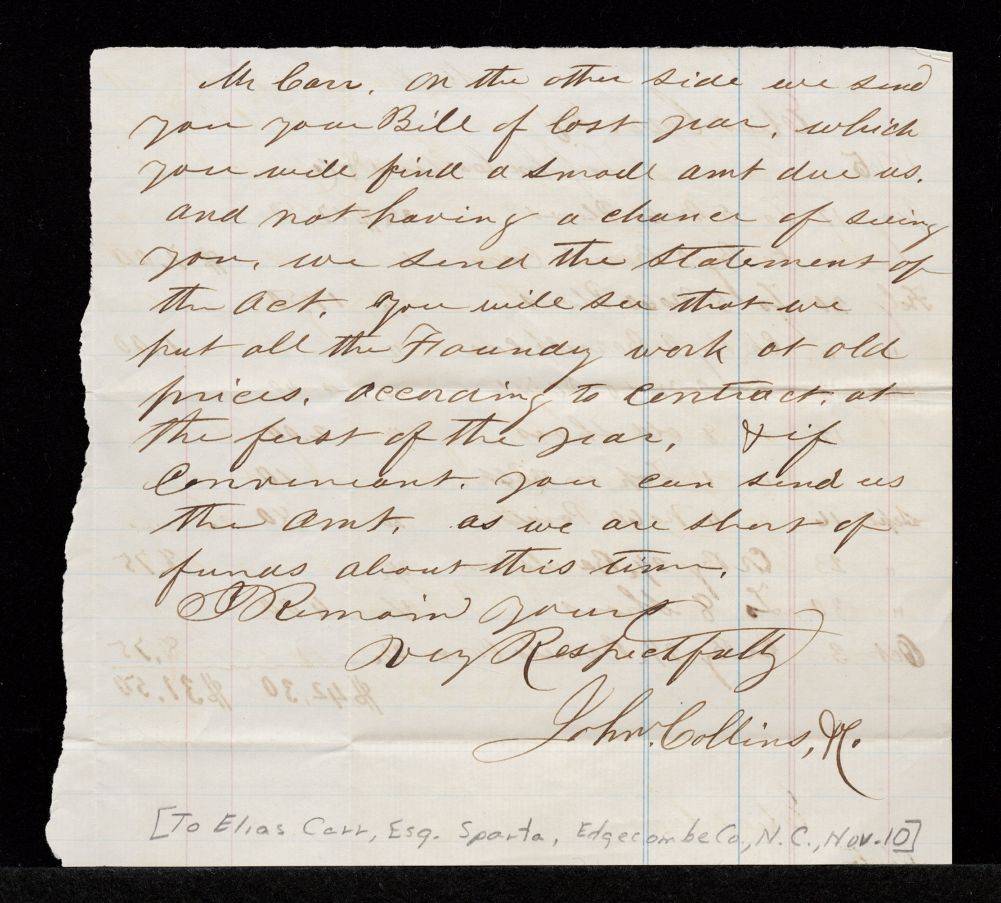 Mr Carr. On the other side we send
you your Bill of last year, which
you will find a small amt due us.
and not having a chance of seeing
you, we send the statement of
the act. you will see that we
put all the Foundy work at old
prices. according to contract, at
the ferst of the year, & if
Convenient. you can send us
the amt. as we are short of
funds about this time.
I Remain yours
very Respectfully
John Collins,
[To Elias Carr, Esq. Sparta, Edgecombe Co., N.C., Nov. 10]